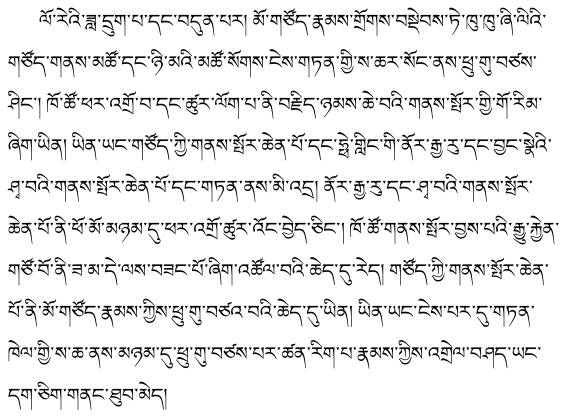 ལོ་རེའི་ཟླ་དྲུག་པ་དང་བདུན་པར། མོ་གཙོད་རྣམས་གྲོགས་བསྡེབས་ཏེ་ཁུ་ཁུ་ཞི་ལིའི་
གཙོད་གནས་མཚོ་དང་ཉི་མའི་མཚོ་སོགས་ངེས་གཏན་གྱི་ས་ཆར་སོང་ནས་ཕྲུ་གུ་བཙས་
ཤིང་། ཁོ་ཚོ་ཕར་འགྲོ་བ་དང་ཚུར་ལོག་པ་ནི་བརྗིད་ཉམས་ཆེ་བའི་གནས་སྤོར་གྱི་གོ་རིམ་
ཞིག་ཡིན། ཡིན་ཡང་གཙོད་ཀྱི་གནས་སྤོར་ཆེན་པོ་དང་ཧྥེ་གླིང་གི་ནོར་རྒྱ་རུ་དང་བྱང་སྣེའི་
ཤྭ་བའི་གནས་སྤོར་ཆེན་པོ་དང་གཏན་ནས་མི་འདྲ། ནོར་རྒྱ་རུ་དང་ཤྭ་བའི་གནས་སྤོར་
ཆེན་པོ་ནི་ཕོ་མོ་མཉམ་དུ་ཕར་འགྲོ་ཚུར་འོང་བྱེད་ཅིང་། ཁོ་ཚོ་གནས་སྤོར་བྱས་པའི་རྒྱུ་རྐྱེན་
གཙོ་བོ་ནི་ཟ་མ་དེ་ལས་བཟང་པོ་ཞིག་འཚོལ་བའི་ཆེད་དུ་རེད། གཙོད་ཀྱི་གནས་སྤོར་ཆེན་
པོ་ནི་མོ་གཙོད་རྣམས་ཀྱིས་ཕྲུ་གུ་བཙའ་བའི་ཆེད་དུ་ཡིན། ཡིན་ཡང་ངེས་པར་དུ་གཏན་
ཁེལ་གྱི་ས་ཆ་ནས་མཉམ་དུ་ཕྲུ་གུ་བཙས་པར་ཚན་རིག་པ་རྣམས་ཀྱིས་འགྲེལ་བཤད་ཡང་
དག་ཅིག་གནང་ཐུབ་མེད།